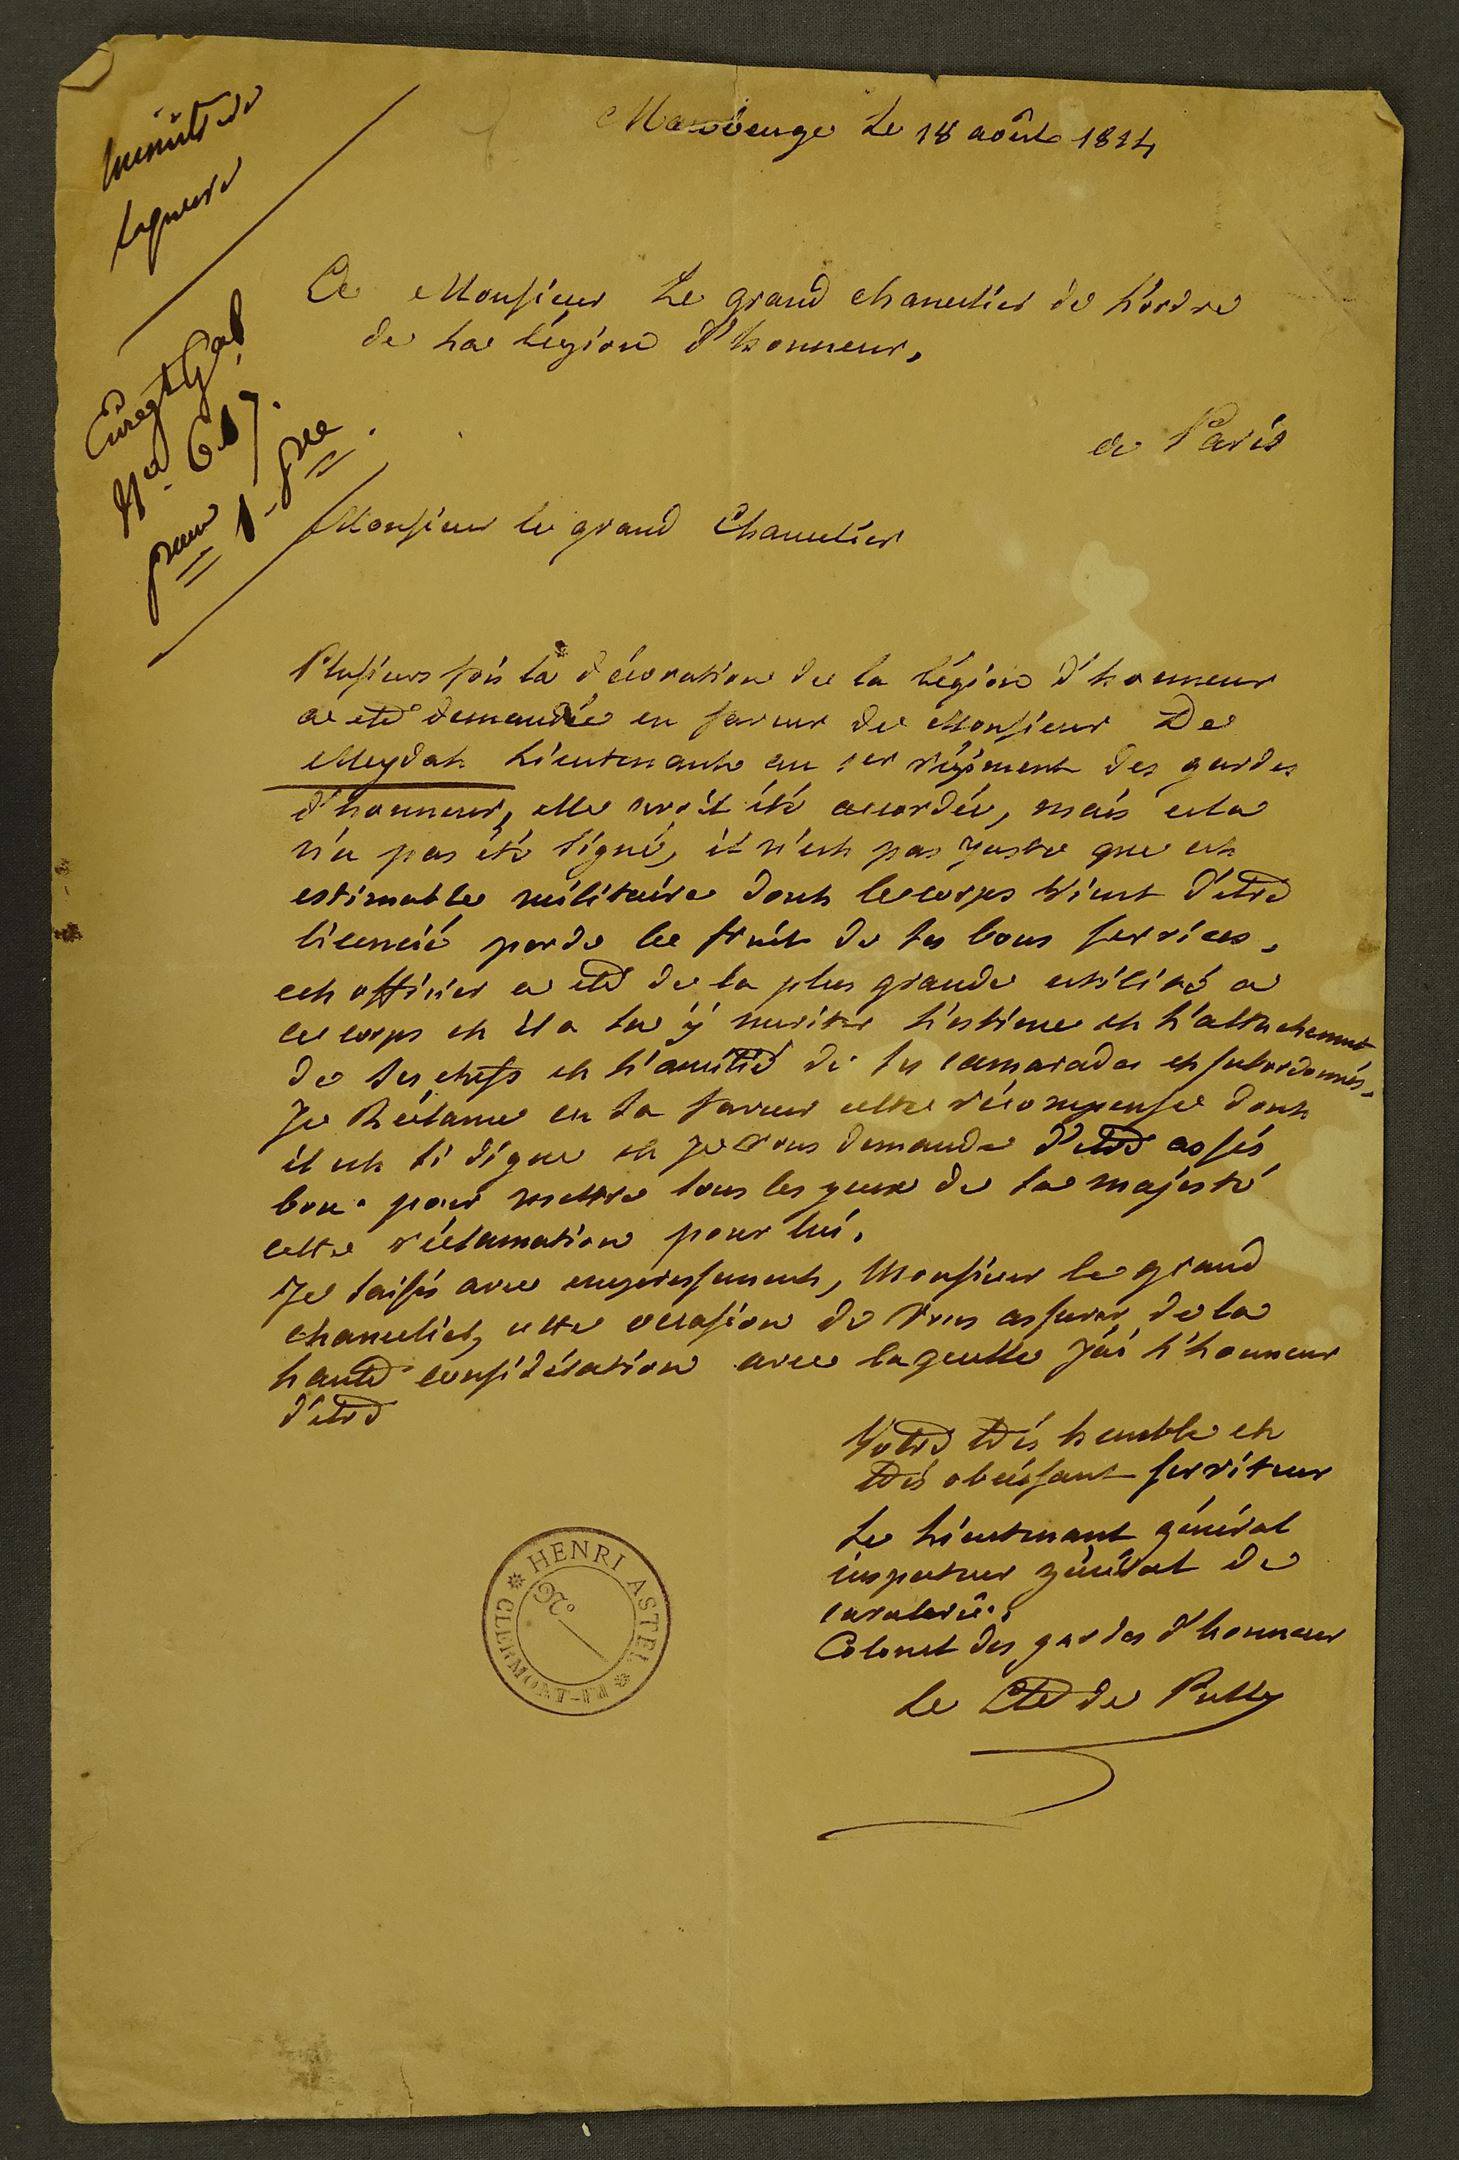 Maubeuge Le 18 août 1814
ministre de
la guerre
Enregt Gal
No. 617.
1-
A Monsieur Le grand chancelier de L'ordre
de La Légion d'honneur.
a Paris
Monsieur le grand Chancelier
Plusieurs fois la décoration de la Légion d'honneur
a eté demandée en faveur de Monsieur De
Meydat Lieutenant au 1er régiment des gardes
d'honneur, elle avoit été accordée, mais cela
n'a pas été signé, il n'est pas juste que cet
estimable militaire dont le corps vient d'etre
licencié perde le fruit de ses bons services.
cet officier a eté de la plus grande utilité a
ce corps et il a su y meriter l'estime et l'attachement
de ses chefs et l'amitié de ses camarades et subordonnés.
Je Réclame en sa faveur cette récompense dont
il est si digne et je vous demande d'etre assés
bon pour mettre sous les yeux de sa majesté
cette réclamation pour lui.
Je saisis avec empressement, Monsieur le grand
chancelier, cette occasion de vous assurer de la
haute considération avec laquelle j'ai l'honneur
d'etre
Votre très humble et
très obeissant serviteur
Le Lieutenant général
inspecteur général de
cavalerie.
Colonel des gardes d'honneur
Le Cte de Pully
HENRI ASTEL
No
CLERMONT-Fd